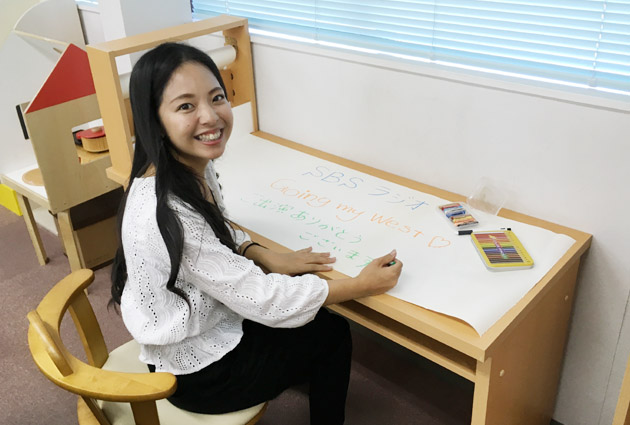 SBS ラジオ
Going my west♡
出演ありがとう
ございます